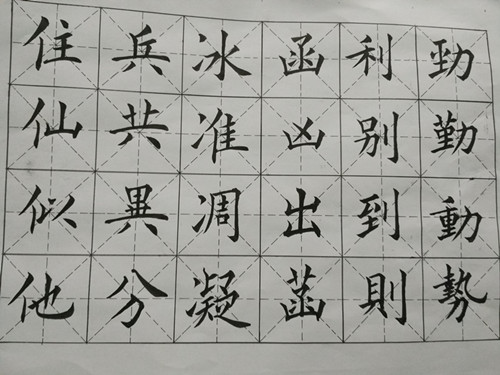 住兵冰函利勁
仙共准凶别勤
似異凋出到動
他分凝菡則勢